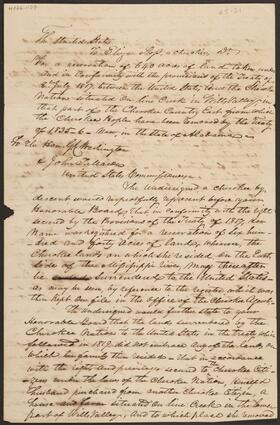 The United States
To Eliza Ross, a Cherokee Dr
For a reservation of 640 acres of Land taken under
and in Conformity with the provisions of the Treaty of
8th July 1817 between the United States and the Cherokee
Nation, situated on Line Creek in Wills Valley, in
that part of the Cherokee County East from which
the Cherokee People have been removed by the Treaty
of 1835-6 - Now in the State of Alabama
To the Hon
& John Eaton
United States Commissioners
The undersigned a Cherokee by
descent would respectfully represent before your
Honorable Board, that in conformity with the right
secured by the Provisions of the Treaty of 1817, her
Name was registered for a reservation of six hun
dred and forty acres of land, whenever the
Cherokee lands on which she resided on the East
side of the Mississippi river, may thereafter
be surrendered to the United States
as may be seen by reference to the register which was
then kept on file in the office of the Cherokee Agent.
The undersigned would further state to your
Honorable Board that the land surrendered by the
Cherokee Nation to the United States in the treaty which
followed in 1819 did not embrace any of the lands on
which her family then resided - that in accordance
with the rights and privileges secured to Cherokee Citi
zens under the laws of the Cherokee Nation,
Husband purchased from another Cherokee Citizen, a
house and farm situated on Line Creek in the same
part of Wills Valley, and to which place she removed